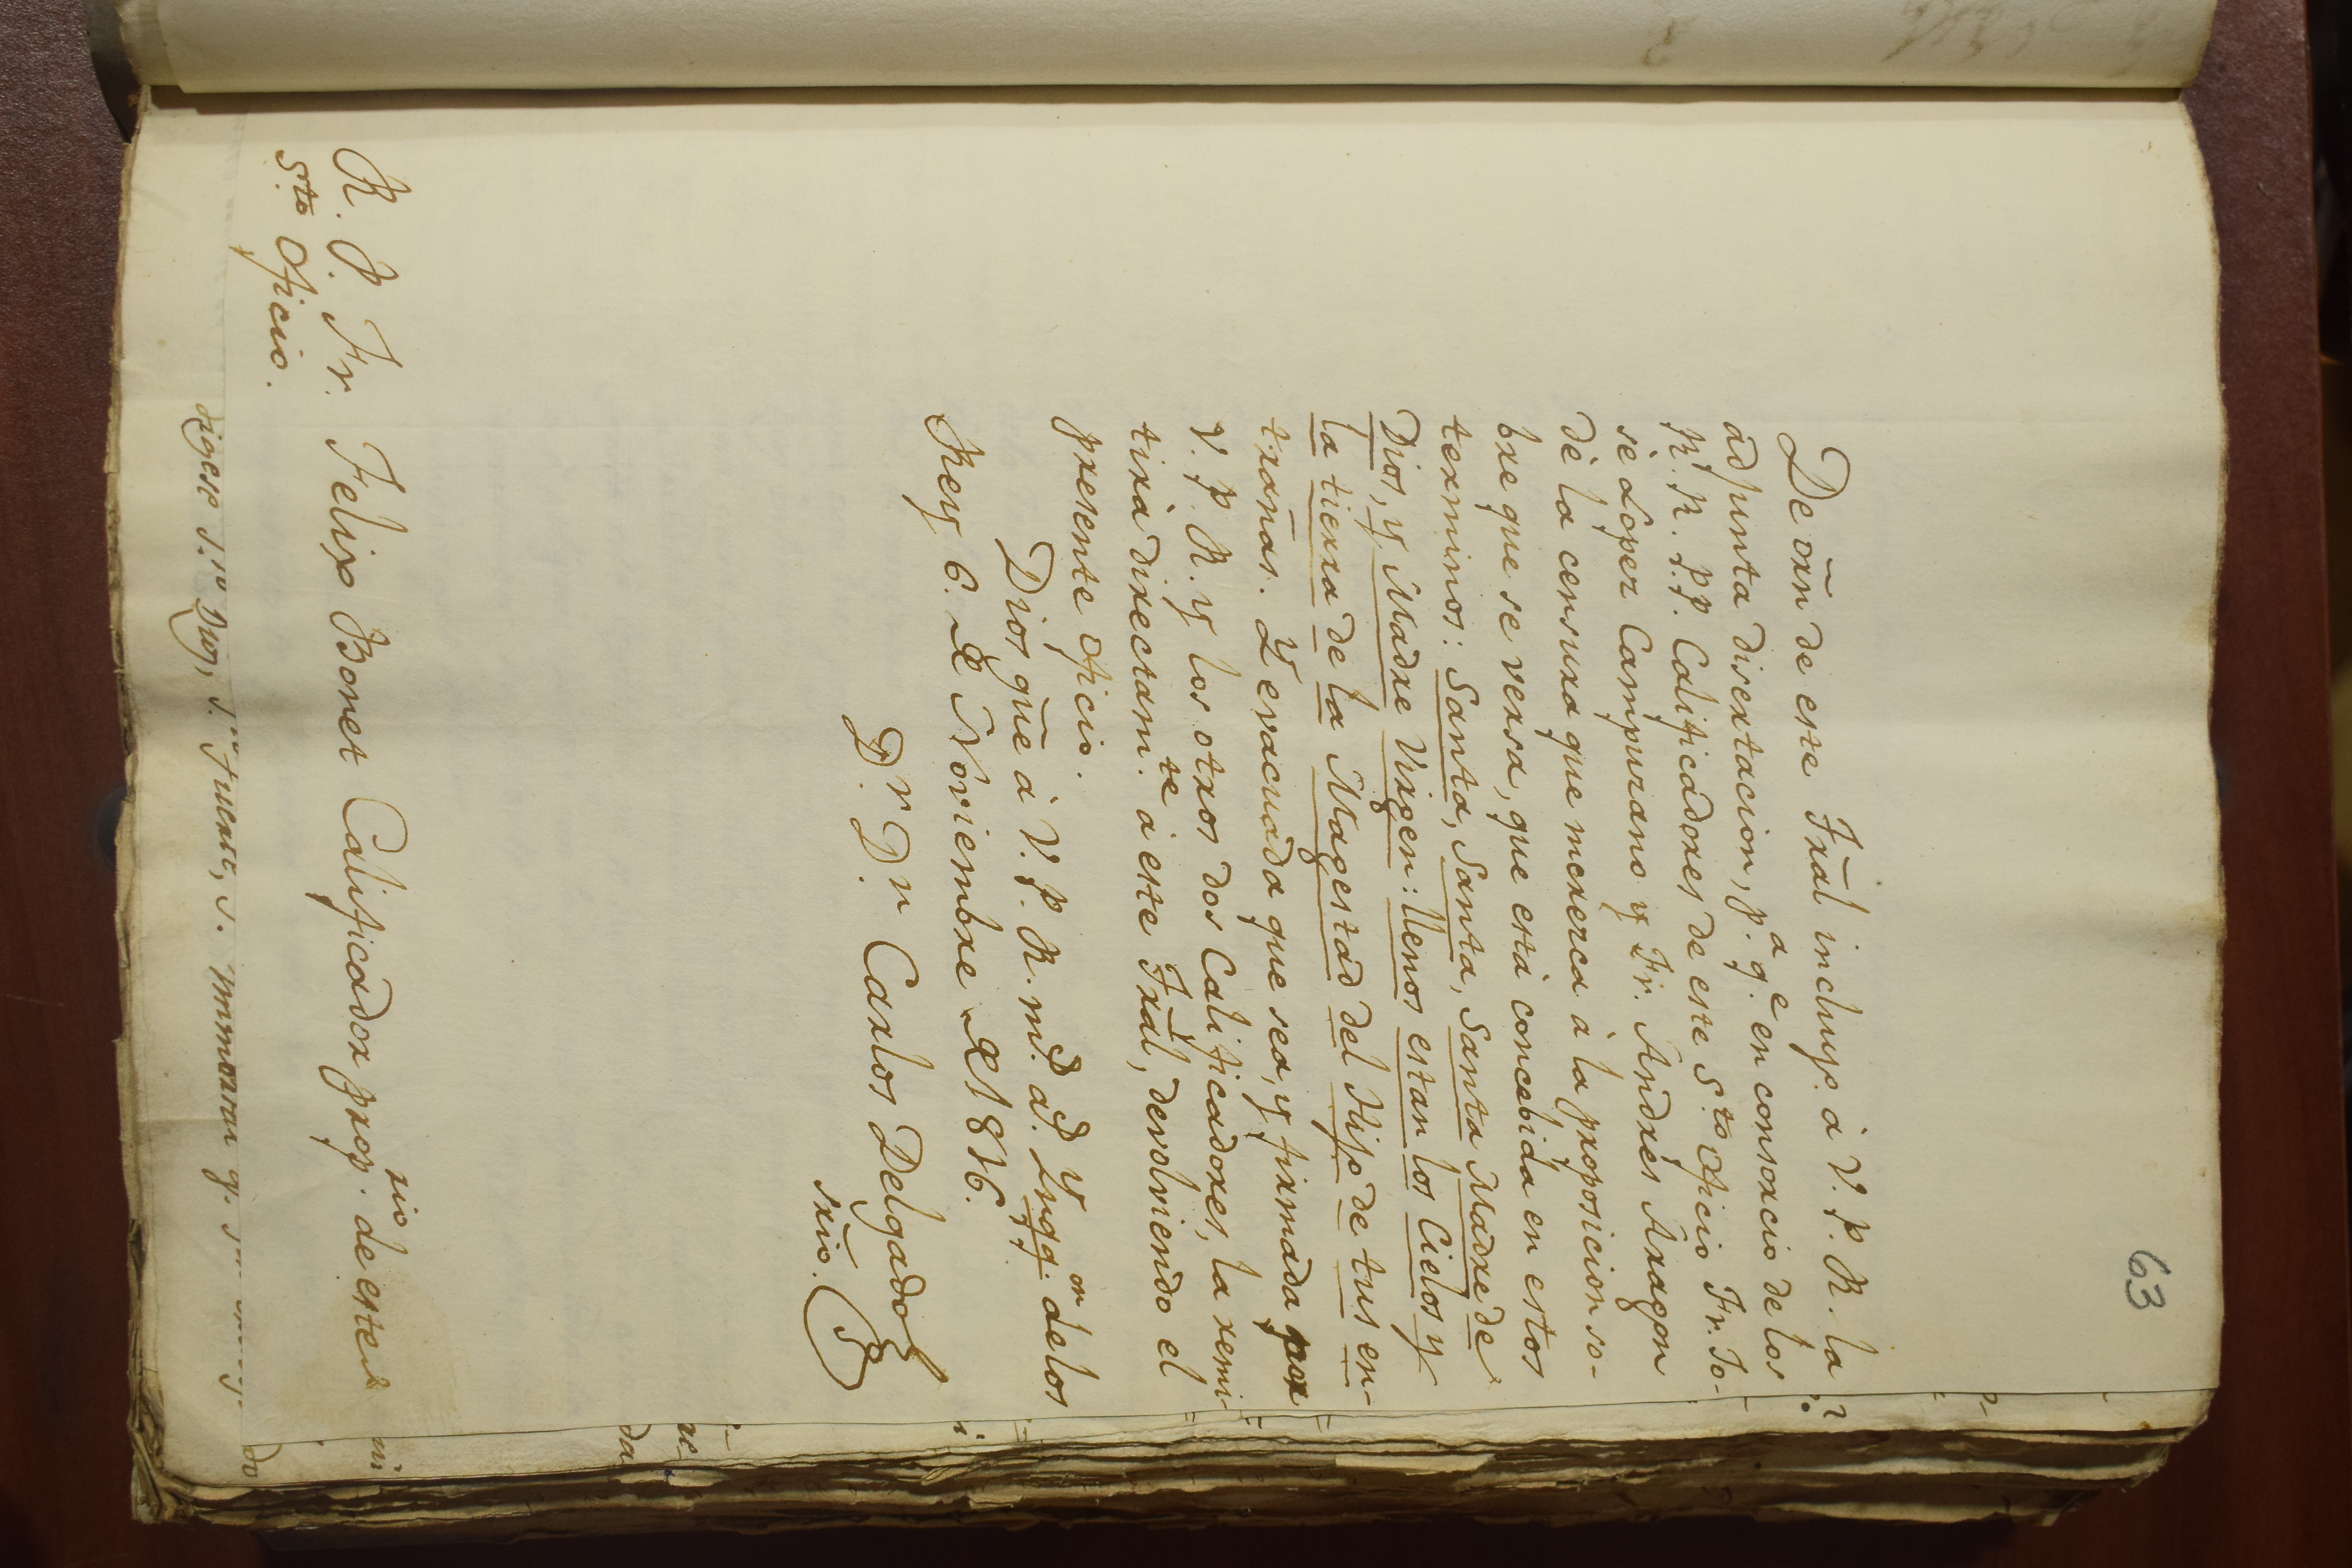 63
De orñ de este Fral incluyo à V. P. R. la
adjunta disertacion, p.ª q.e en consorcio de los
R. R. P.P. Calificadores de este S.to Oficio Fr. Jo-
sè Lopez Campurano y Fr. Andrés Aragon
dè la censura que merezca à la proposicion so-
bre que se versa, que està concebida en estos
terminos: Santa, Santa, Santa Madre de
Dios, y Madre Virgen: llenos estan los Cielos y
la tierra de la Magestad del Hijo de tus en-
trañas. Y evacuada que sea, y firmada por
V. P. R. y los otros dos Calificadores, la remi-
tirà directam.te à este Fral, devolviendo el
presente Oficio.
Dios gũe à V. P. R. m.s a.s Ynqq.on de los
Rey 6. de Noviembre de 1816.
D.r D.n Carlos Delgado
srio.
R. P. Fr. Felix Bonet Calificador prop.rio de este
S.to Oficio.